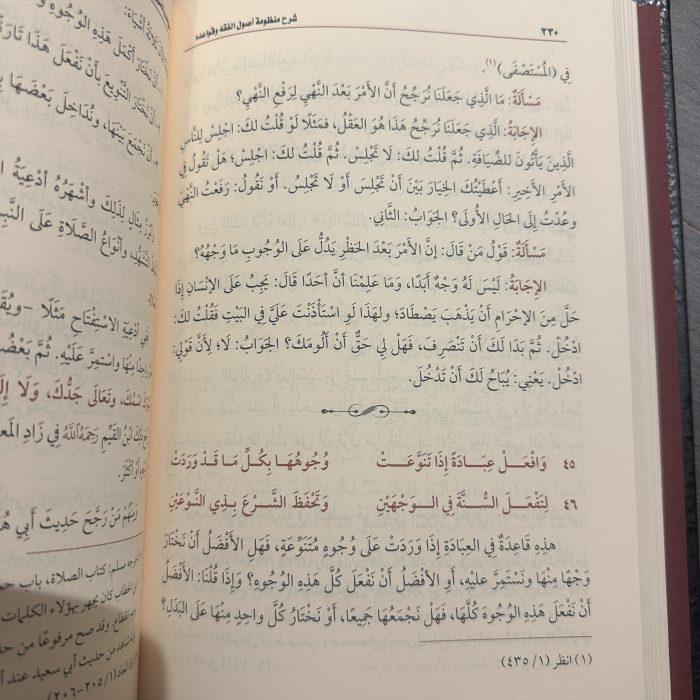 ٢٣٠
شرح منظومة أصول الفقه وقواعده
فِي (المُسْتَصْفَى)(١).
مَسْأَلَةٌ: مَا الَّذِي جَعَلَنَا نُرَجِّحُ أَنَّ الأَمْرَ بَعْدَ النَّهْيِ لِرَفْعِ النَّهْيِ؟
الإِجَابَةُ: الَّذِي جَعَلَنَا نُرَجِّحُ هَذَا هُوَ العَقْلُ، فَمَثَلًا لَوْ قُلْتُ لَكَ: اجْلِسْ لِلنَّاسِ
الَّذِينَ يَأْتُونَ لِلضِّيَافَةِ. ثُمَّ قُلْتُ لَكَ: لَا تَجْلِسْ. ثُمَّ قُلْتُ لَكَ: اجْلِسْ؛ هَلْ تَقُولُ فِي
الأَمْرِ الأَخِيرِ: أَعْطَيْتُكَ الخِيَارَ بَيْنَ أَنْ تَجْلِسَ أَوْ لَا تَجْلِسَ. أَوْ تَقُولُ: رَفَعْتُ النَّهْيَ
وعُدْتُ إِلَى الحَالِ الأُولَى؟ الجَوَابُ: الثَّانِي.
مَسْأَلَةٌ: قَوْلُ مَنْ قَالَ: إِنَّ الأَمْرَ بَعْدَ الحَظْرِ يَدُلُّ عَلَى الْوُجُوبِ مَا وَجْهُهُ؟
الإِجَابَةُ: لَيْسَ لَهُ وَجْهٌ أَبَدًا، وَمَا عَلِمْنَا أَنَّ أَحَدًا قَالَ: يَجِبُ عَلَى الإِنْسَانِ إِذَا
حَلَّ مِنَ الإِحْرَامِ أَنْ يَذْهَبَ يَصْطَادُ؛ ولهَذَا لَوِ اسْتَأْذَنْتَ عَلَيَّ فِي البَيْتِ فَقُلْتُ لَكَ:
ادْخُلْ. ثُمَّ بَدَا لَكَ أَنْ تَنْصَرِفَ، فَهَلْ لِي حَقٌّ أَنْ أَلُومَكَ؟ الجَوَابُ: لَا؛ لِأَنَّ قَوْلِي:
ادْخُلْ. يَعْنِي: يُبَاحُ لَكَ أَنْ تَدْخُلَ.
٤٥ وَافْعَلْ عِبَادَةً إِذَا تَنَوَّعَتْ وُجُوهُهَا بِكُلِّ مَا قَدْ وَرَدَتْ
٤٦ لِتَفْعَلَ السُّنَّةَ فِي الوَجْهَيْنِ وَتَحْفَظَ الشَّرْعَ بِذِي النَّوْعَيْنِ
هذِهِ قَاعِدَةٌ فِي العِبَادَةِ إِذَا وَرَدَتْ عَلَى وُجُوهٍ مُتَنَوِّعَةٍ، فَهَلِ الأَفْضَلُ أَنْ نَخْتَارَ
وَجْهًا مِنْهَا وَنَسْتَمِرَّ عَلَيْهِ، أَوِ الأَفْضَلُ أَنْ نَفْعَلَ كُلَّ هَذِهِ الوُجُوهِ؟ وَإِذَا قُلْنَا: الأَفْضَلُ
أَنْ نَفْعَلَ هَذِهِ الوُجُوهَ كُلَّهَا، فَهَلْ نَجْمَعُهَا جَمِيعًا، أَوْ نَخْتَارُ كُلَّ وَاحِدٍ مِنْهَا عَلَى البَدَلِ؟
(١) انظر (١/ ٤٣٥)
أَنْ نَخْتَارَ أَكْمَلَ هَذِهِ الوُجُوهِ
أَنْ نَخْتَارَ التَّنْوِيعَ بِأَنْ نَفْعَلَ هَذَا تَارَةً
أَنْ نَجْمَعَ بَيْنَهَا، وَنُدَاخِلَ بَعْضَهَا
مِثَالٍ لِذَلِكَ وَأَشْهَرُهُ أَدْعِيَةُ
التَّشَهُّدِ، وَأَنْوَاعُ الصَّلَاةِ عَلَى
فَفِي أَدْعِيَةِ الِاسْتِفْتَاحِ مَثَلًا
مِنْهَا وَاسْتَمِرَّ عَلَيْهِ. ثُمَّ بَعْضُ
اسْمُكَ، وَتَعَالَى جَدُّكَ، وَلَا
ابْنُ القَيِّمِ رَحِمَهُ اللَّهُ فِي زَادِ
أَوْ أَكْثَرَ.
مَنْ رَجَّحَ حَدِيثَ أَبِي
مسلم: كتاب الصلاة، باب
الخطاب كان يجهر بهؤلاء الكلمات
وقد صح مرفوعًا من
من حديث أبي سعيد عند
(١/ ٢٠٥-٢٠٦)